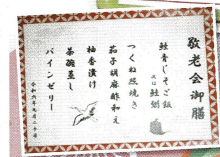 敬老会御膳
鮭青じそご飯
又は鮭粥
つくね照焼き
茄子胡麻酢和え
柚香漬け
茶碗蒸し
パインゼリー
令和六年九月二十日